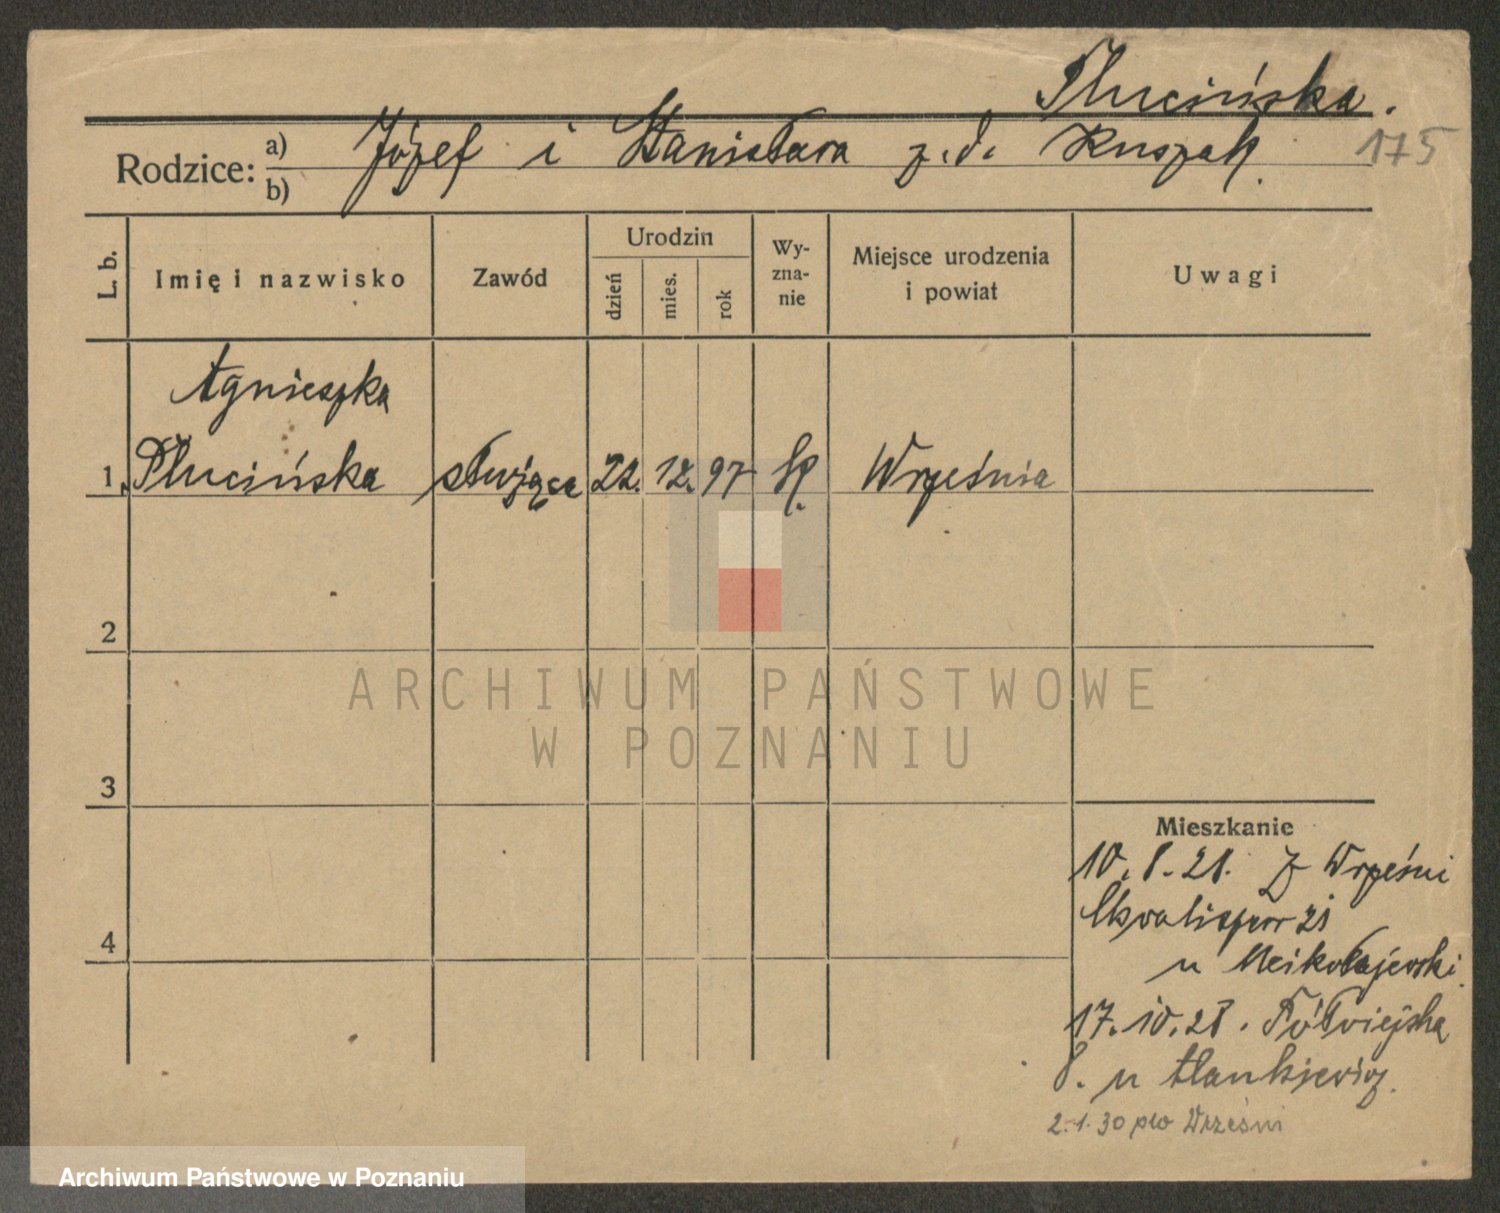 Plucińska.
Rodzice: a) Józef i Stanisława z. d. Ruszak.
b)
175
L. b.
Imię i nazwisko
Zawód
Urodzin
dzień
mies.
rok
Wy-
zna-
nie
Miejsce urodzenia
i powiat
Uwagi
Agnieszka
1. Plucińska służąca 22. 12. 97 Września
2
3
4
Mieszkanie
10. 8. 28. z Wrześni
Chwaliszewo 21
u Mikołajewski.
17. 10. 28. Półwiejska
8. u Stankiewicz.
2. 1. 30 pło Wrześni
ARCHIWUM PAŃSTWOWE
W POZNANIU
Archiwum Państwowe w Poznaniu